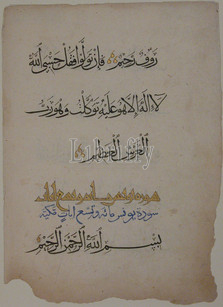 رؤف رحيم فان تولوا فقل حسبي الله
لا اله الا هو عليه توكلت وهو رب
العرش العظيم
سورة يونس مائة وتسع آيات مكية
بسم الله الرحمن الرحيم